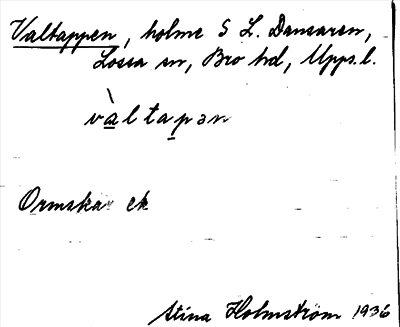 Valtappen, holme S L. Dansaren,
Lossa sn, Bro hd, Upps.l.
vàltapən
Ormska ek
Stina Holmström 1936